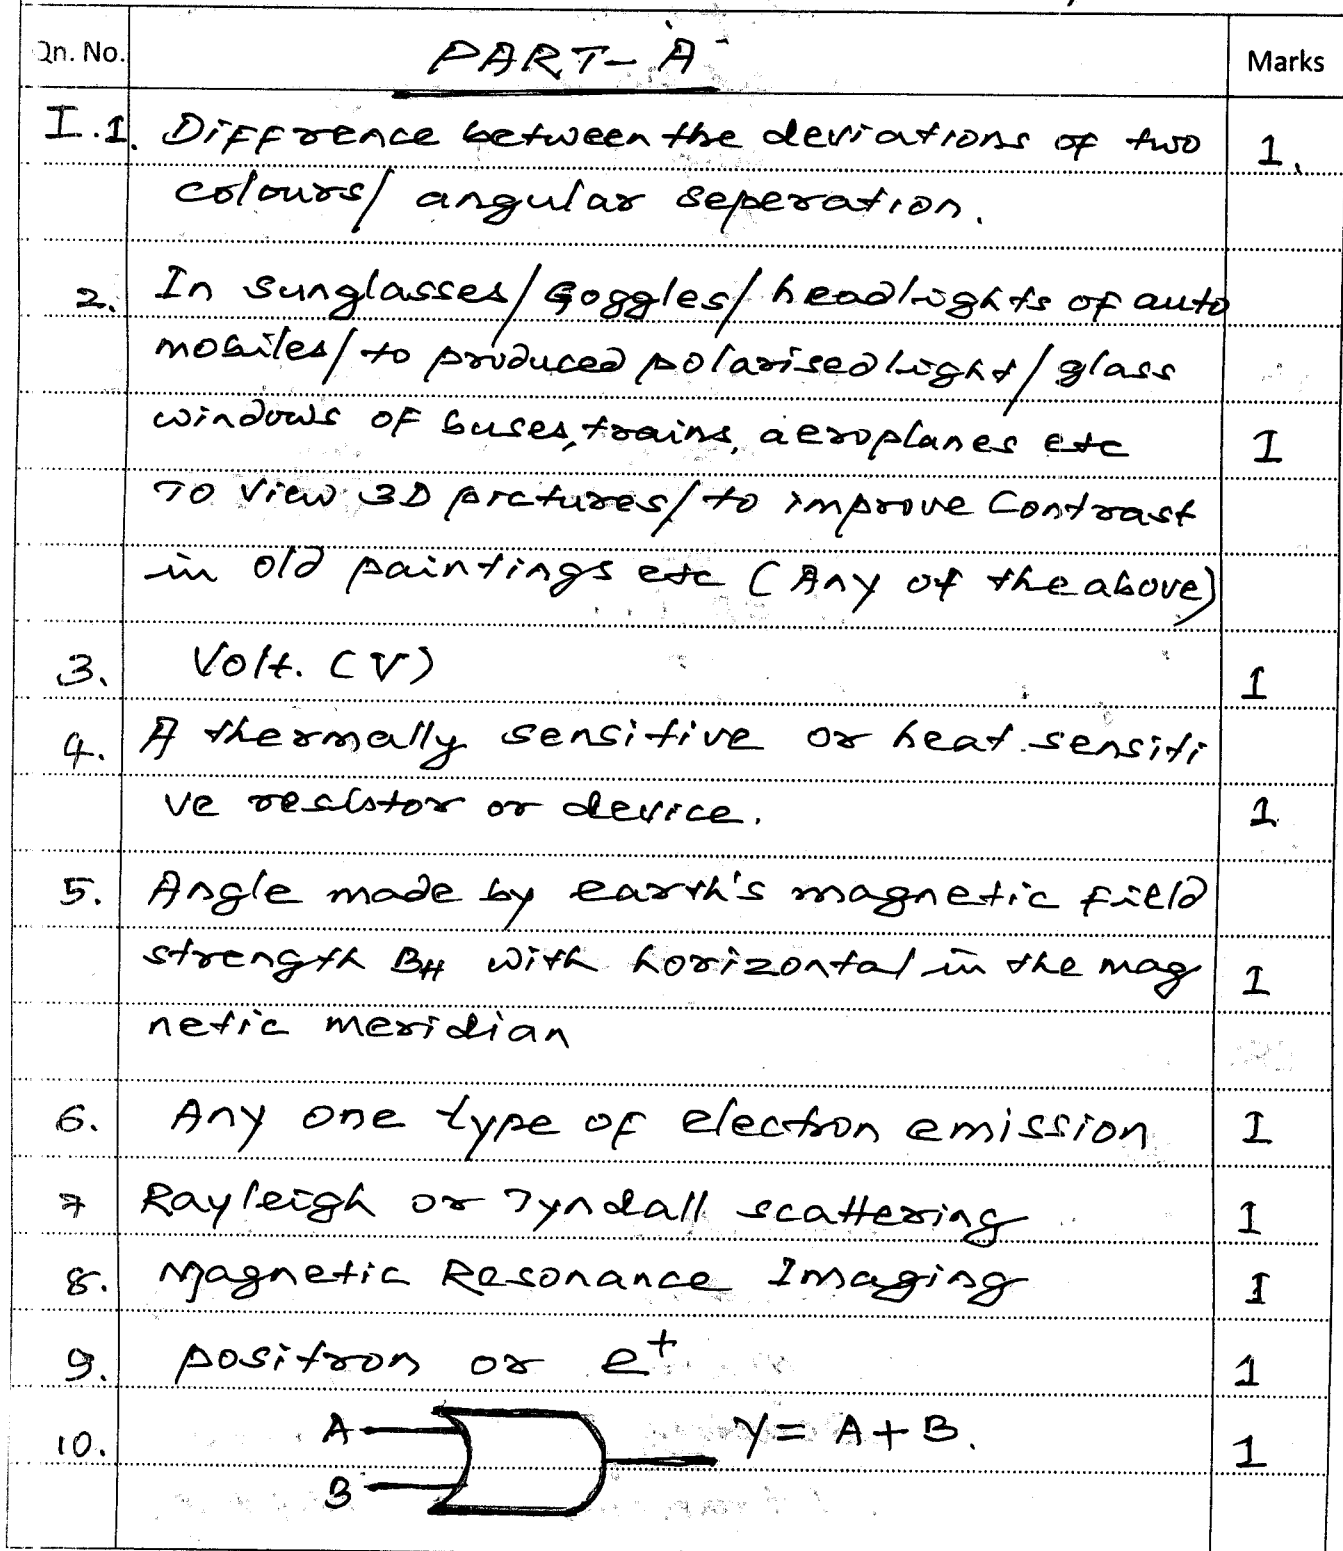 Qn. No. PART-A Marks
I.1. Difference between the deviations of two 1.
colours/ angular seperation.
2. In sunglasses/Goggles/headlights of auto
mobiles/to produced polarised light/glass
windows of buses, trains, aeroplanes etc 1
To view 3D pictures/to improve Contrast
in old paintings etc (Any of the above)
3. Volt. (V) 1
4. A thermally sensitive or heat sensiti
ve resistor or device. 1
5. Angle made by earth's magnetic field
strength BH with horizontal in the mag 1
netic meridian
6. Any one type of electron emission 1
7 Rayleigh or Tyndall scattering 1
8. Magnetic Resonance Imaging 1
9. positron or e+ 1
10. A Y = A + B. 1
B